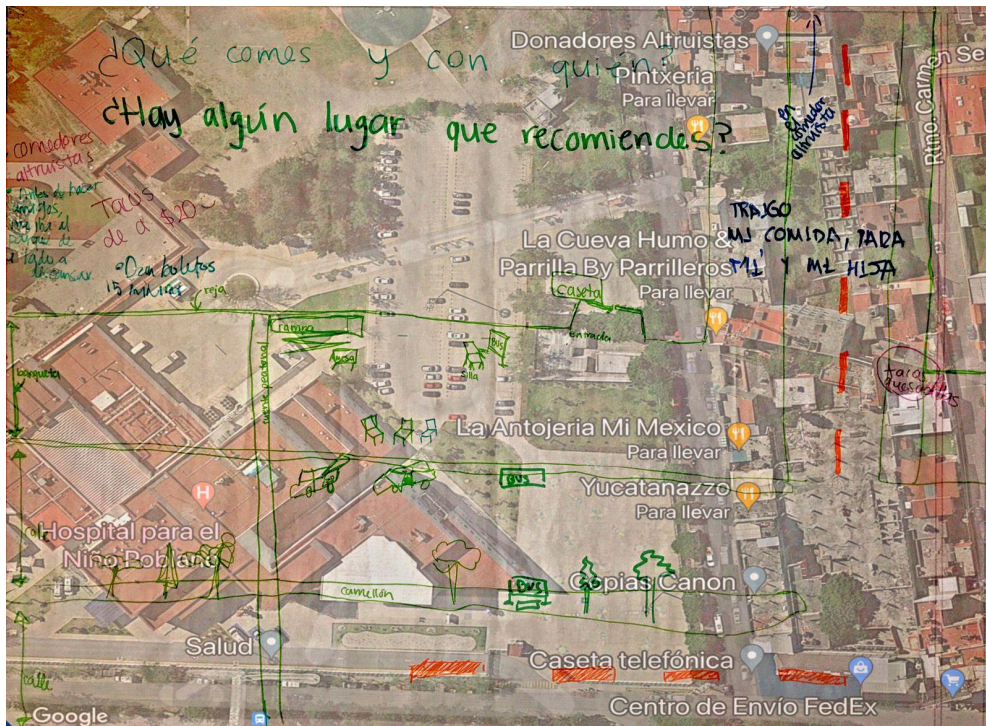 ¿Qué comes y con quién?
¿Hay algún lugar que recomiendes?
Donadores Altruistas
Pintxeria
Para llevar
Rtno. Carmen Se
en comedor
altruista
comedores
altruistas
Tacos
de a $20
Antes de hacer
parque de
descansar.
Dan boletos
15 mixtas
TRAIGO
MI COMIDA, PARA
MI Y MI HIJA
La Cueva Humo &
Parrilla By Parrilleros
Para llevar
reja
caseta
rampa
entrada
BUS
silla
banqueta
puente peatonal
tacos
quesadillas
La Antojeria Mi Mexico
Para llevar
BUS
Yucatanazzo
Para llevar
Hospital para el
Niño Poblano
calle
BUS
Copias Canon
camellón
Salud
Caseta telefónica
calle
Centro de Envío FedEx
Google